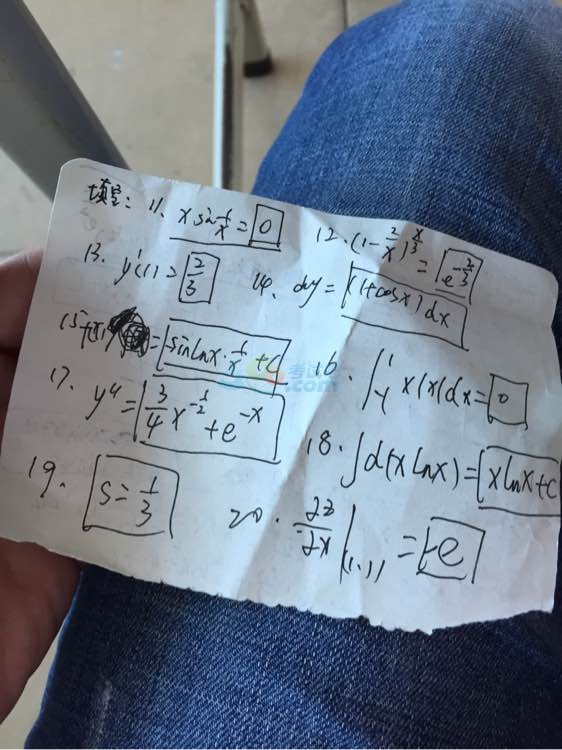 填空: 11. x sin 1/x = 0
12. (1-2/x)^(x/3) = e^(-2/3)
13. y'(1) = 2/3
14. dy = (1+cosx)dx
15 f(x) = sinlnx·1/x+c
16. ∫_{-1}^{1} x|x|dx = 0
17. y" = 3/4 x^(-1/2) + e^(-x)
18. ∫d(xlnx) = xlnx+c
19. S = 1/3
20. ∂z/∂x|(1,1) = -e
考试
.com